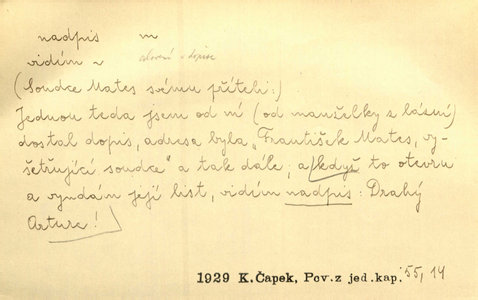 nadpis m
vidím v oslovení v dopise
(Soudce Mates svému příteli:)
Jednou teda jsem od ní (od manželky z lázní)
dostal dopis, adresa byla „František Mates, vy-
šetřující soudce“ a tak dále; a když to otevru
a vyndám její list, vidím nadpis: Drahý
Arture!
1929 K.Čapek, Pov.z jed.kap. 55, 14